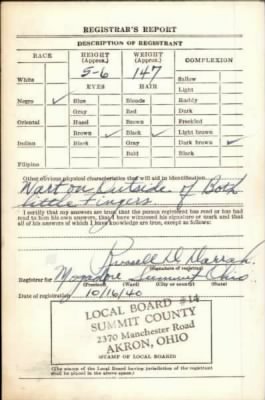 REGISTRAR'S REPORT
DESCRIPTION OF REGISTRANT
RACE
HEIGHT (Approx.)
WEIGHT (Approx.)
COMPLEXION
White
5-6
147
Sallow
EYES
HAIR
Light
Negro ✓
Blue
Blonde
Ruddy
Gray
Red
Dark
Oriental
Hazel
Brown
Freckled
Brown ✓
Black ✓
Light brown
Indian
Black
Gray
Dark brown ✓
Bald
Black
Filipino
Other obvious physical characteristics that will aid in identification
Wart on Outside of Both
little Fingers.
I certify that my answers are true; that the person registered has read or has had
read to him his own answers; that I have witnessed his signature or mark and that
all of his answers of which I have knowledge are true, except as follows:
Russell D. Darrah
(Signature of registrar)
Registrar for Mogadore Summit Ohio
(Precinct) (Ward) (City or county) (State)
Date of registration 10/16/40
LOCAL BOARD #14
SUMMIT COUNTY
2370 Manchester Road
AKRON, OHIO
(STAMP OF LOCAL BOARD)
(The stamp of the Local Board having jurisdiction of the registrant
shall be placed in the above space.)